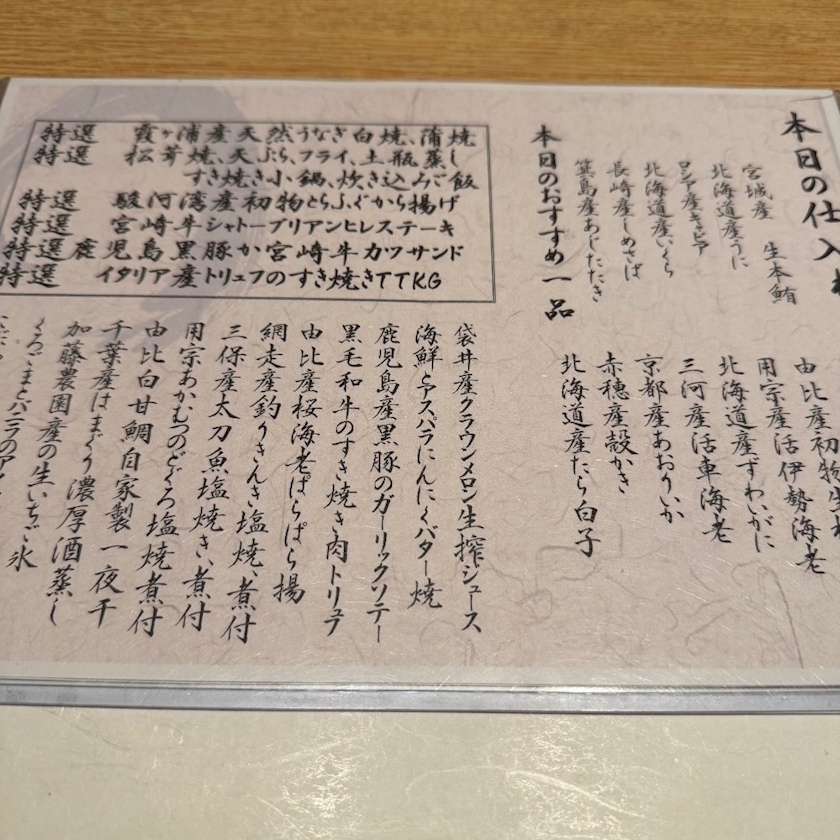 本日の仕入れ
宮城産 生本鮪
北海道産うに
ロシア産キャビア
北海道産いくら
長崎産しめさば
箕島産あじたたき
由比産初物生
用宗産活伊勢海老
北海道産ずわいがに
三河産活車海老
京都産あおりいか
赤穂産殻かき
北海道産たら白子
本日のおすすめ一品
特選 霞ヶ浦産天然うなぎ白焼、蒲焼
特選 松茸焼、天ぷら、フライ、土瓶蒸し
すき焼き小鍋、炊き込みご飯
特選 駿河湾産初物とらふぐから揚げ
特選 宮崎牛シャトーブリアンヒレステーキ
特選 鹿児島黒豚か宮崎牛カツサンド
特選 イタリア産トリュフのすき焼きTTKG
袋井産クラウンメロン生搾ジュース
海鮮とアスパラにんにくバター焼
鹿児島産黒豚のガーリックソテー
黒毛和牛のすき焼き肉トリュフ
由比産桜海老ぱらぱら揚
網走産釣りきんき塩焼、煮付
三保産太刀魚塩焼き、煮付
用宗あかむつのどぐろ塩焼煮付
由比白甘鯛自家製一夜干
千葉産はまぐり濃厚酒蒸し
加藤農園産の生いちご氷
くろごまとバニラのアイ